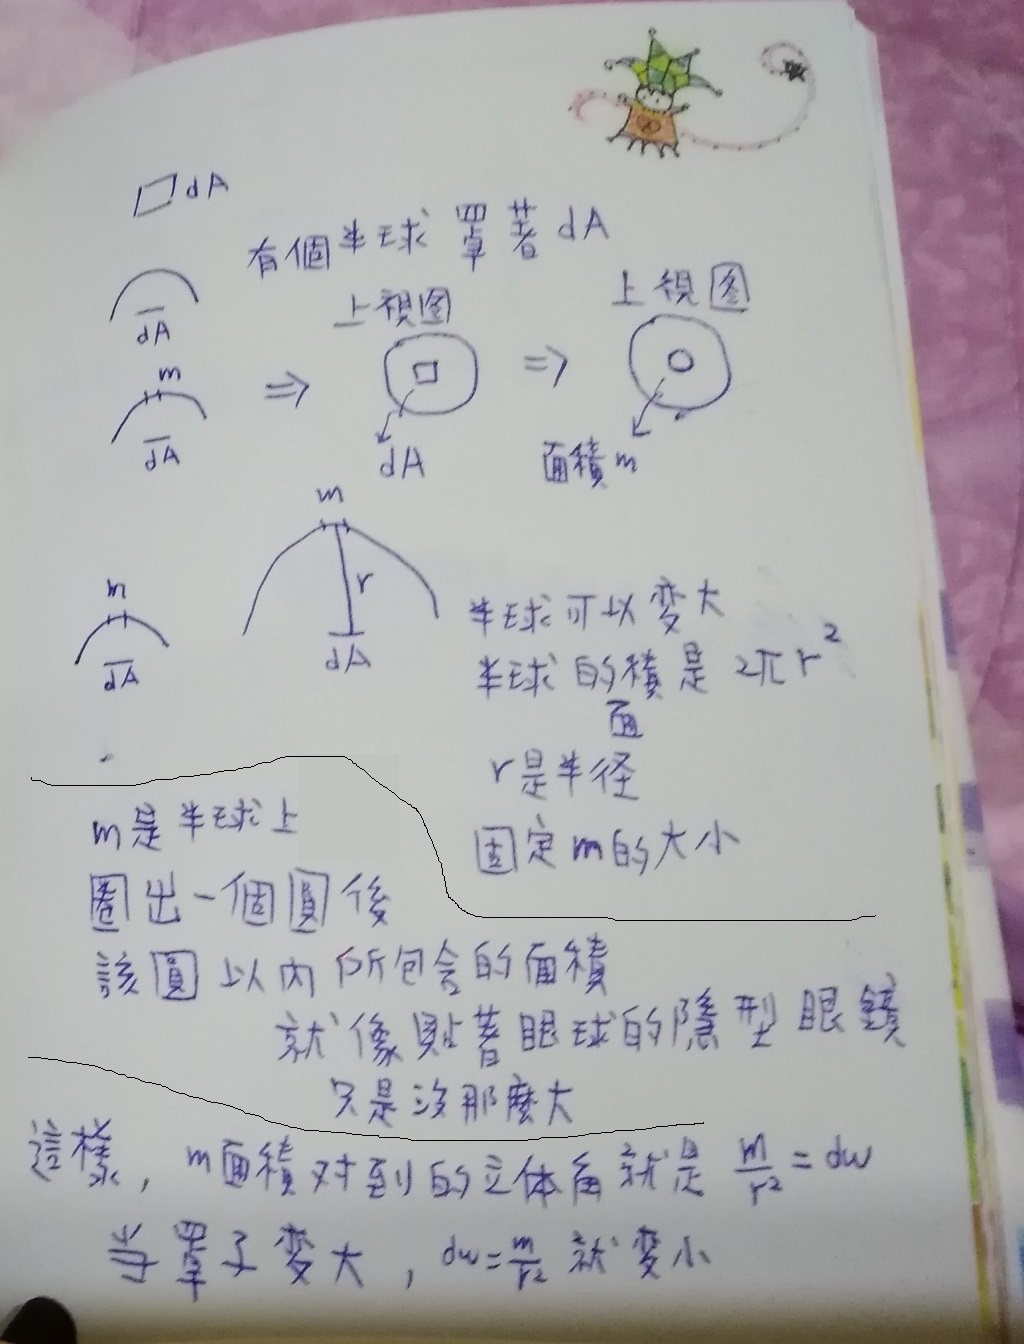 dA
有個半球罩著dA
上視图
上視图
dA
m
dA
dA
面積m
m
r
dA
m
dA
半球可以变大
半球的積是2πr²
面
r是半径
固定m的大小
m是半球上
圈出一個圓後
該圓以內所包含的面積
就像貼著眼球的隱型眼鏡
只是沒那麼大
這樣，m面積对到的立体角就是 m/r² = dw
当罩子变大，dw = m/r² 就变小